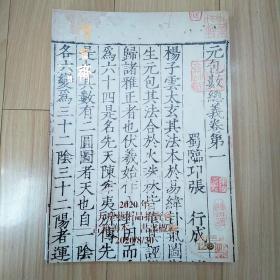 元包數總義卷第一
蜀臨邛張 行成
楊子雲太玄其法本於易緯卦氣圖
生元包其法合於火珠林
歸諸雅正者也伏羲始作 而
為六十四是名先天陳 夷所傳先
其數有二圓圖者天也自一陰
各六變為三十一陰三十二陽者運
2020年
2020/8/30